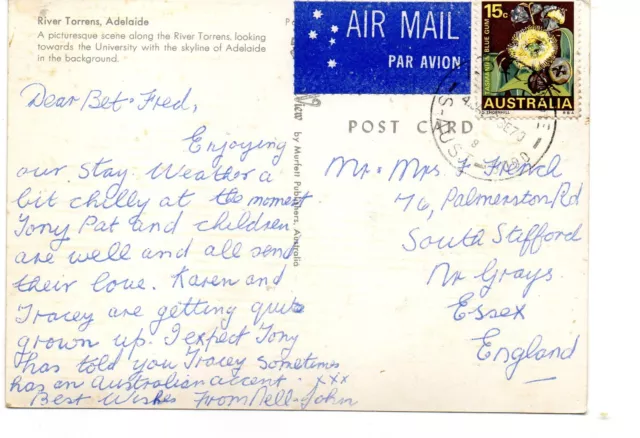 River Torrens, Adelaide
A picturesque scene along the River Torrens, looking
towards the University with the skyline of Adelaide
in the background.
AIR MAIL
PAR AVION
15c
TASMANIAN BLUE GUM
AUSTRALIA
POST CARD
View by Murfett Publishers, Australia
Dear Bet & Fred,
Enjoying
our stay. Weather a
bit chilly at the moment
Tony Pat and children
are well and all send
their love. Karen and
Tracey are getting quite
grown up. I expect Tony
has told you Tracey sometimes
has an Australian accent. xxx
Best Wishes From Nell & John
Mr & Mrs F French
76, Palmerston Rd
South Stifford
Nr Grays.
Essex
England